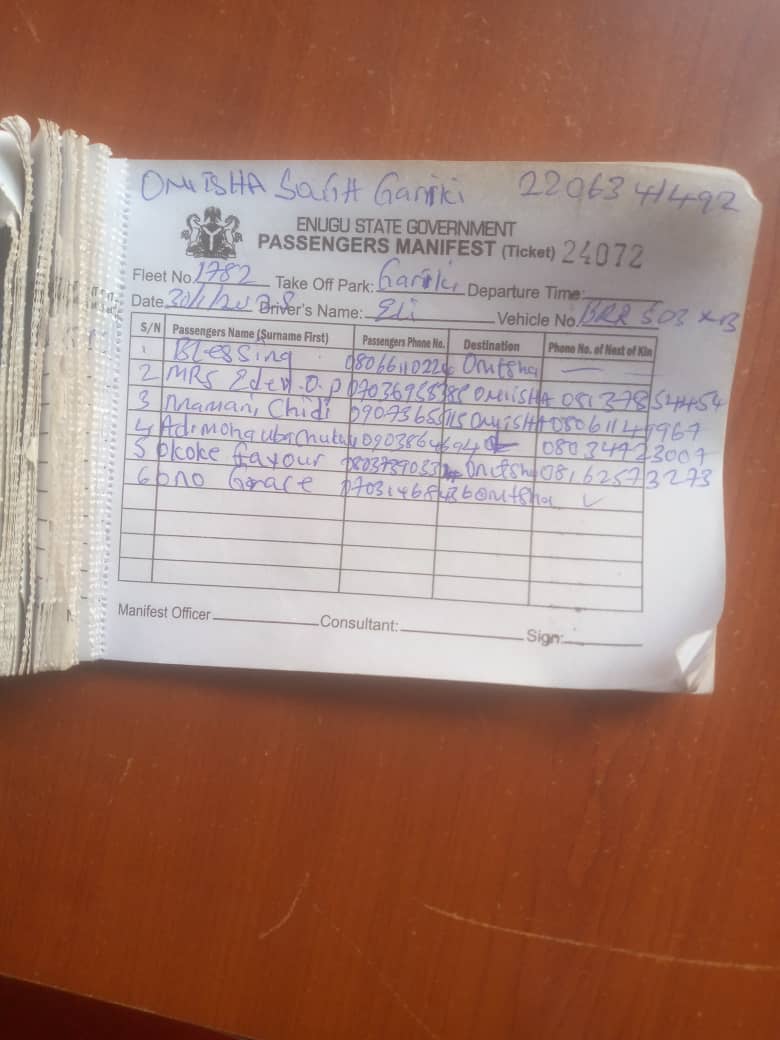 ONITSHA South Gariki 2206341492
ENUGU STATE GOVERNMENT
PASSENGERS MANIFEST (Ticket) 24072
Fleet No 1782 Take Off Park: Gariki Departure Time:
Date Driver's Name: Eli Vehicle No. 503 XB
S/N Passengers Name (Surname First) Passengers Phone No. Destination Phone No. of Next of Kin
1 Blessing Onitsha —
2 MRS Edem O.P ONITSHA 08137854454
3 Mamani Chidi ONITSHA 08061149967
4 08034723009
5 Okoke favour Onitsha 08162573273
6 Ono Grace 07031468436 Onitsha ✓
Manifest Officer Consultant: Sign: